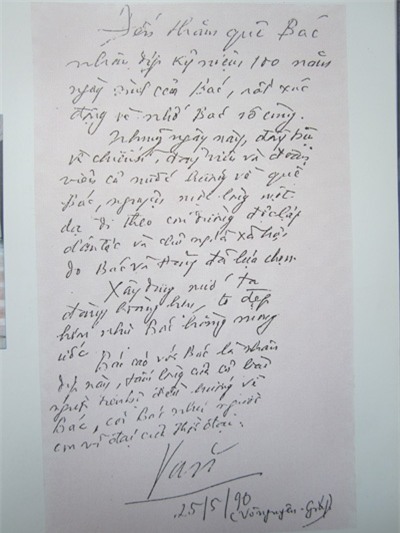 Đến thăm quê Bác
nhân dịp kỷ niệm 100 năm
ngày sinh của Bác, rất xúc
động và nhớ Bác vô cùng.
Những ngày này, đồng bào
và chiến sĩ, đảng viên và đoàn
viên cả nước hướng về quê
Bác, nguyện một lòng một
dạ đi theo con đường độc lập
dân tộc và chủ nghĩa xã hội
do Bác và Đảng đã lựa chọn
Xây dựng nước ta
đàng hoàng hơn, to đẹp
hơn như Bác hằng mong
ước. Báo cáo với Bác là nhân
dịp này, tấm lòng của cả loài
người tiến bộ đều hướng về
Bác, coi Bác như người
con vĩ đại của thời đại.
Văn
25/5/90
(Võ Nguyên Giáp)